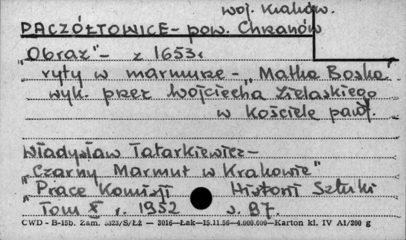 woj. Kraków.
PACZÓŁTOWICE - pow. Chrzanów
"Obraz" - z 1653r
ryty w marmurze - "Matka Boska"
wyk. przez Wojciecha Zielaskiego
w kościele paraf.
Władysław Tatarkiewicz -
"Czarny Marmur w Krakowie"
"Prace Komisji Historii Sztuki
Tom X r. 1952 s. 87.
CWD - B-15b. Zam. 5323/S/Łż — 3016—Łak—15.11.56—4.000.000—Karton kl. IV A1/200 g